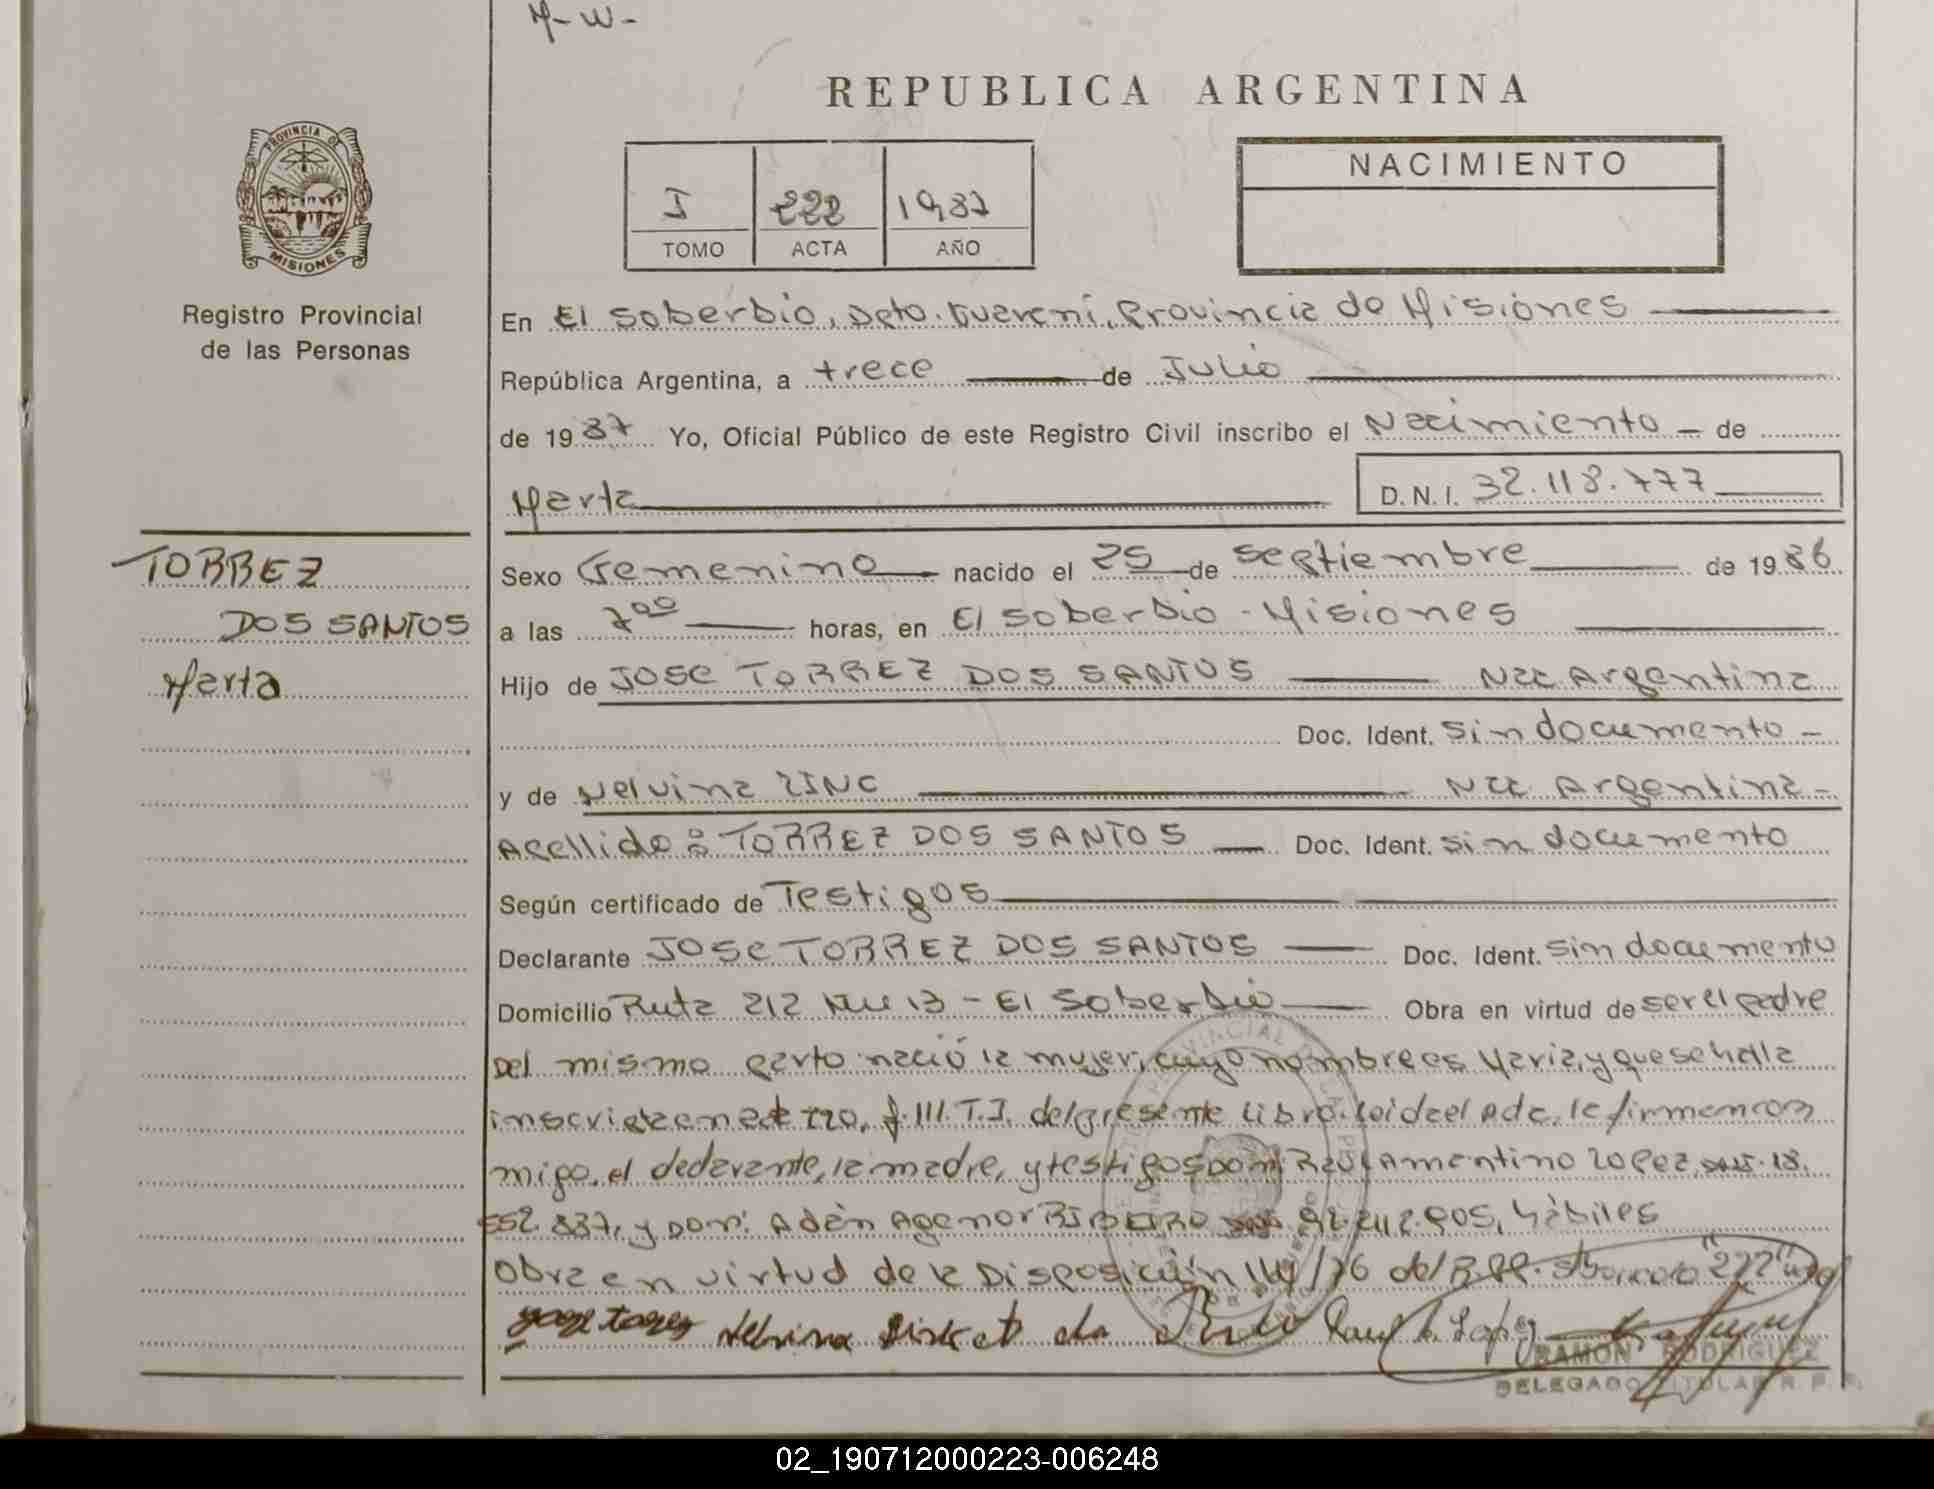 M-W-
REPUBLICA ARGENTINA
PROVINCIA DE
MISIONES
Registro Provincial
de las Personas
I 222 1987
TOMO ACTA AÑO
NACIMIENTO
En El Soberbio, Dpto. Guaraní, Provincia de Misiones
República Argentina, a trece de Julio
de 1987 Yo, Oficial Público de este Registro Civil inscribo el Nacimiento - de
Marta D.N.I. 32.118.777
TORREZ
DOS SANTOS
Marta
Sexo Femenino nacido el 25 de septiembre de 1986
a las 7 00 horas, en El Soberbio - Misiones
Hijo de JOSE TORREZ DOS SANTOS Nac Argentina
Doc. Ident. sin documento -
y de Nelvina ZINC Nac Argentina -
Apellido TORREZ DOS SANTOS Doc. Ident. sin documento
Según certificado de Testigos
Declarante JOSE TORREZ DOS SANTOS Doc. Ident. sin documento
Domicilio Ruta 212 Km 13 - El Soberbio Obra en virtud de ser el padre
Del mismo parto nació la mujer, cuyo nombre es Maria, y que se halla
f. 111. T.I. del presente libro. Leida el Acta, la firman con
migo, el declarante, la madre, y testigos Don: Raul Amentino Lopez, 18.
552.837, y Don: Adán Agenor RIBEIRO hábiles
Obra en virtud de la Disposición /76 del R.P.P. "222"
Raul A. Lopez
RAMON RODRIGUEZ
DELEGADO TITULAR R. P. P.
02_190712000223-006248